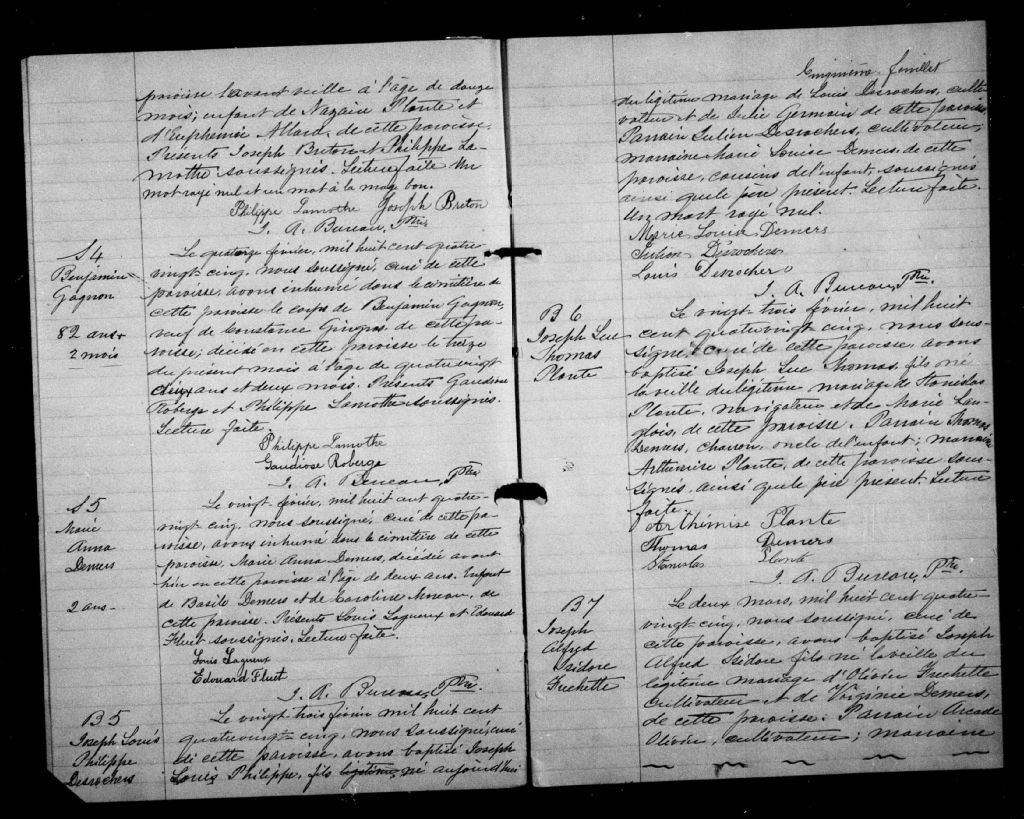 paroisse l'avant veille à l'âge de douze
mois; enfant de Nazaire Plante et
d'Euphemie Allard, de cette paroisse.
Présents Joseph Breton et Philippe La-
mothe soussignés. Lecture faite Un
mot rayé nul et un mot à la marge bon.
Philippe Lamothe Joseph Breton
J. A. Bureau, Ptre
S4
Benjamin
Gagnon
82 ans
2 mois
Le quatorze février, mil huit cent quatre
vingt cinq, nous soussigné, curé de cette
paroisse, avons inhumé dans le cimetière de
cette paroisse le corps de Benjamin Gagnon,
veuf de Constance Gingras de cette pa-
roisse; décédé en cette paroisse le treize
du présent mois à l'âge de quatrevingt
deux ans et deux mois. Présents Gaudiose
Roberge et Philippe Lamothe soussignés.
Lecture faite.
Philippe Lamothe
Gaudiose Roberge
J. A. Bureau, Ptre
S5
Marie
Anna
Demers
2 ans
Le vingt février, mil huit cent quatre-
vingt cinq, nous soussigné, curé de cette pa-
roisse, avons inhumé dans le cimetière de cette
paroisse, Marie Anna Demers, décédée avant
hier en cette paroisse à l'âge de deux ans. Enfant
de Basile Demers et de Caroline Moreau, de
cette paroisse. Présents Louis Lagueux et Edouard
Fluet soussignés. Lecture faite.
Louis Lagueux
Edouard Fluet
J. A. Bureau, Ptre.
B5
Joseph Louis
Philippe
Desrochers
Le vingt trois février mil huit cent
quatrevingt cinq, nous soussigné, curé
de cette paroisse, avons baptisé Joseph
Louis Philippe, fils legitime, né aujourd'hui
Cinquième feuillet
du légitime mariage de Louis Desrochers, culti-
vateur et de Julie Germain de cette paroisse
Parrain Julien Desrochers, cultivateur;
marraine Marie Louise Demers, de cette
paroisse, cousins de l'enfant, soussignés
ainsi que le père présent. Lecture faite.
Un mot rayé nul.
Marie Louise Demers
Julien Desrochers
Louis Desrochers
J. A. Bureau, Ptre.
B6
Joseph Luc
Thomas
Plante
Le vingt trois février, mil huit
cent quatrevingt cinq, nous sous-
signé, curé de cette paroisse, avons
baptisé Joseph Luc Thomas, fils né
la veille du légitime mariage de Stanislas
Plante, navigateur et de Marie Lan-
glois, de cette paroisse. Parrain Thomas
Demers, charron, oncle de l'enfant; marraine
Arthemise Plante, de cette paroisse sous-
signés, ainsi que le père présent. Lecture
faite.
Arthémise Plante
Thomas Demers
Stanislas Plante
J. A. Bureau, Ptre.
B7
Joseph
Alfred
Isidore
Frechette
Le deux mars, mil huit cent quatre-
vingt cinq, nous soussigné, curé de
cette paroisse, avons baptisé Joseph
Alfred Isidore fils né la veille du
légitime mariage d'Olivier Frechette
Cultivateur et de Virginie Demers,
de cette paroisse. Parrain Arcade
Olivier, cultivateur; marraine